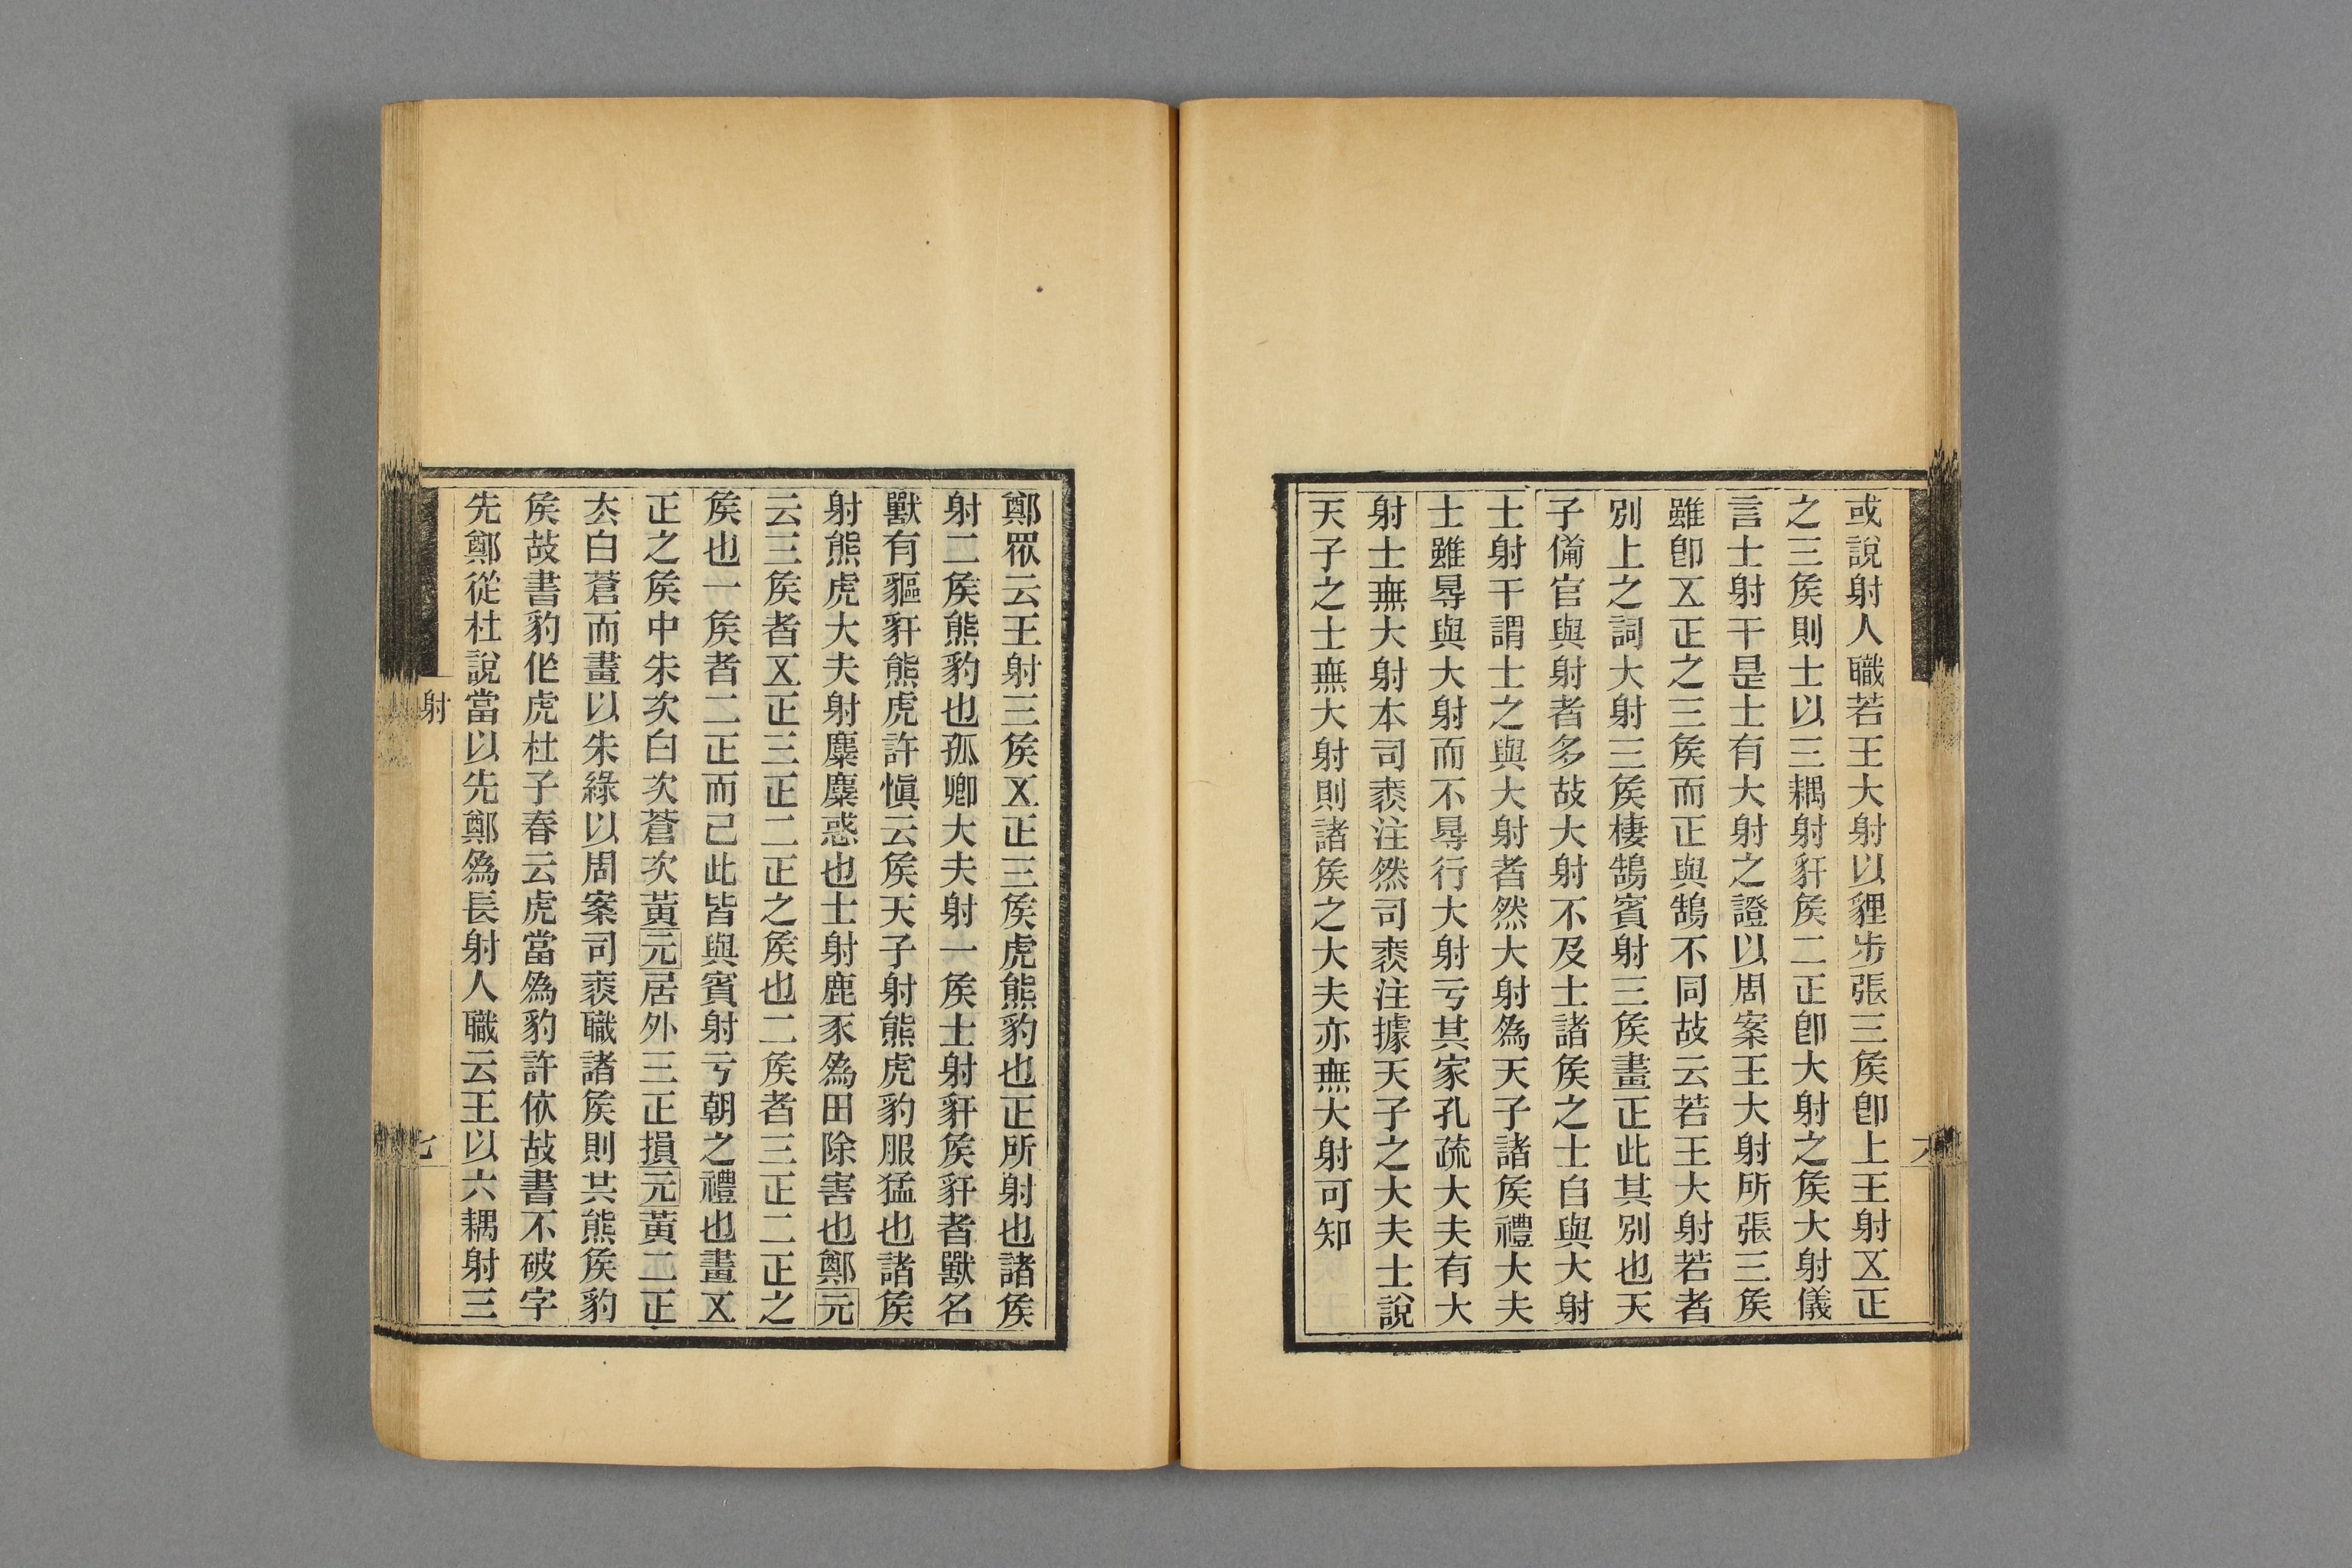 或說射人職若王大射以貍步張三矦卽上王射㐅正
之三矦則士以三耦射豻矦二正卽大射之矦大射儀
言士射干是士有大射之證以周案王大射所張三矦
雖卽㐅正之三矦而正與鵠不同故云若王大射若者
別上之詞大射三矦棲鵠賓射三矦畫正此其別也天
子僃官與射者多故大射不及士諸矦之士自與大射
士射干謂士之與大射者然大射爲天子諸矦禮大夫
士雖㝵與大射而不㝵行大射亏其家孔疏大夫有大
射士無大射本司裘注然司裘注據天子之大夫士說
天子之士無大射則諸矦之大夫亦無大射可知
六
鄭眾云王射三矦㐅正三矦虎熊豹也正所射也諸矦
射二矦熊豹也孤卿大夫射一矦士射豻矦豻者獸名
獸有貙豻熊虎許愼云矦天子射熊虎豹服猛也諸矦
射熊虎大夫射麋麋惑也士射鹿豕爲田除害也鄭元
云三矦者㐅正三正二正之矦也二矦者三正二正之
矦也一矦者二正而已此皆與賓射亏朝之禮也畫㐅
正之矦中朱次白次蒼次黃元居外三正損元黃二正
厺白蒼而畫以朱綠以周案司裘職諸矦則共熊矦豹
矦故書豹作虎杜子春云虎當爲豹許依故書不破字
先鄭從杜說當以先鄭爲長射人職云王以六耦射三
射
七